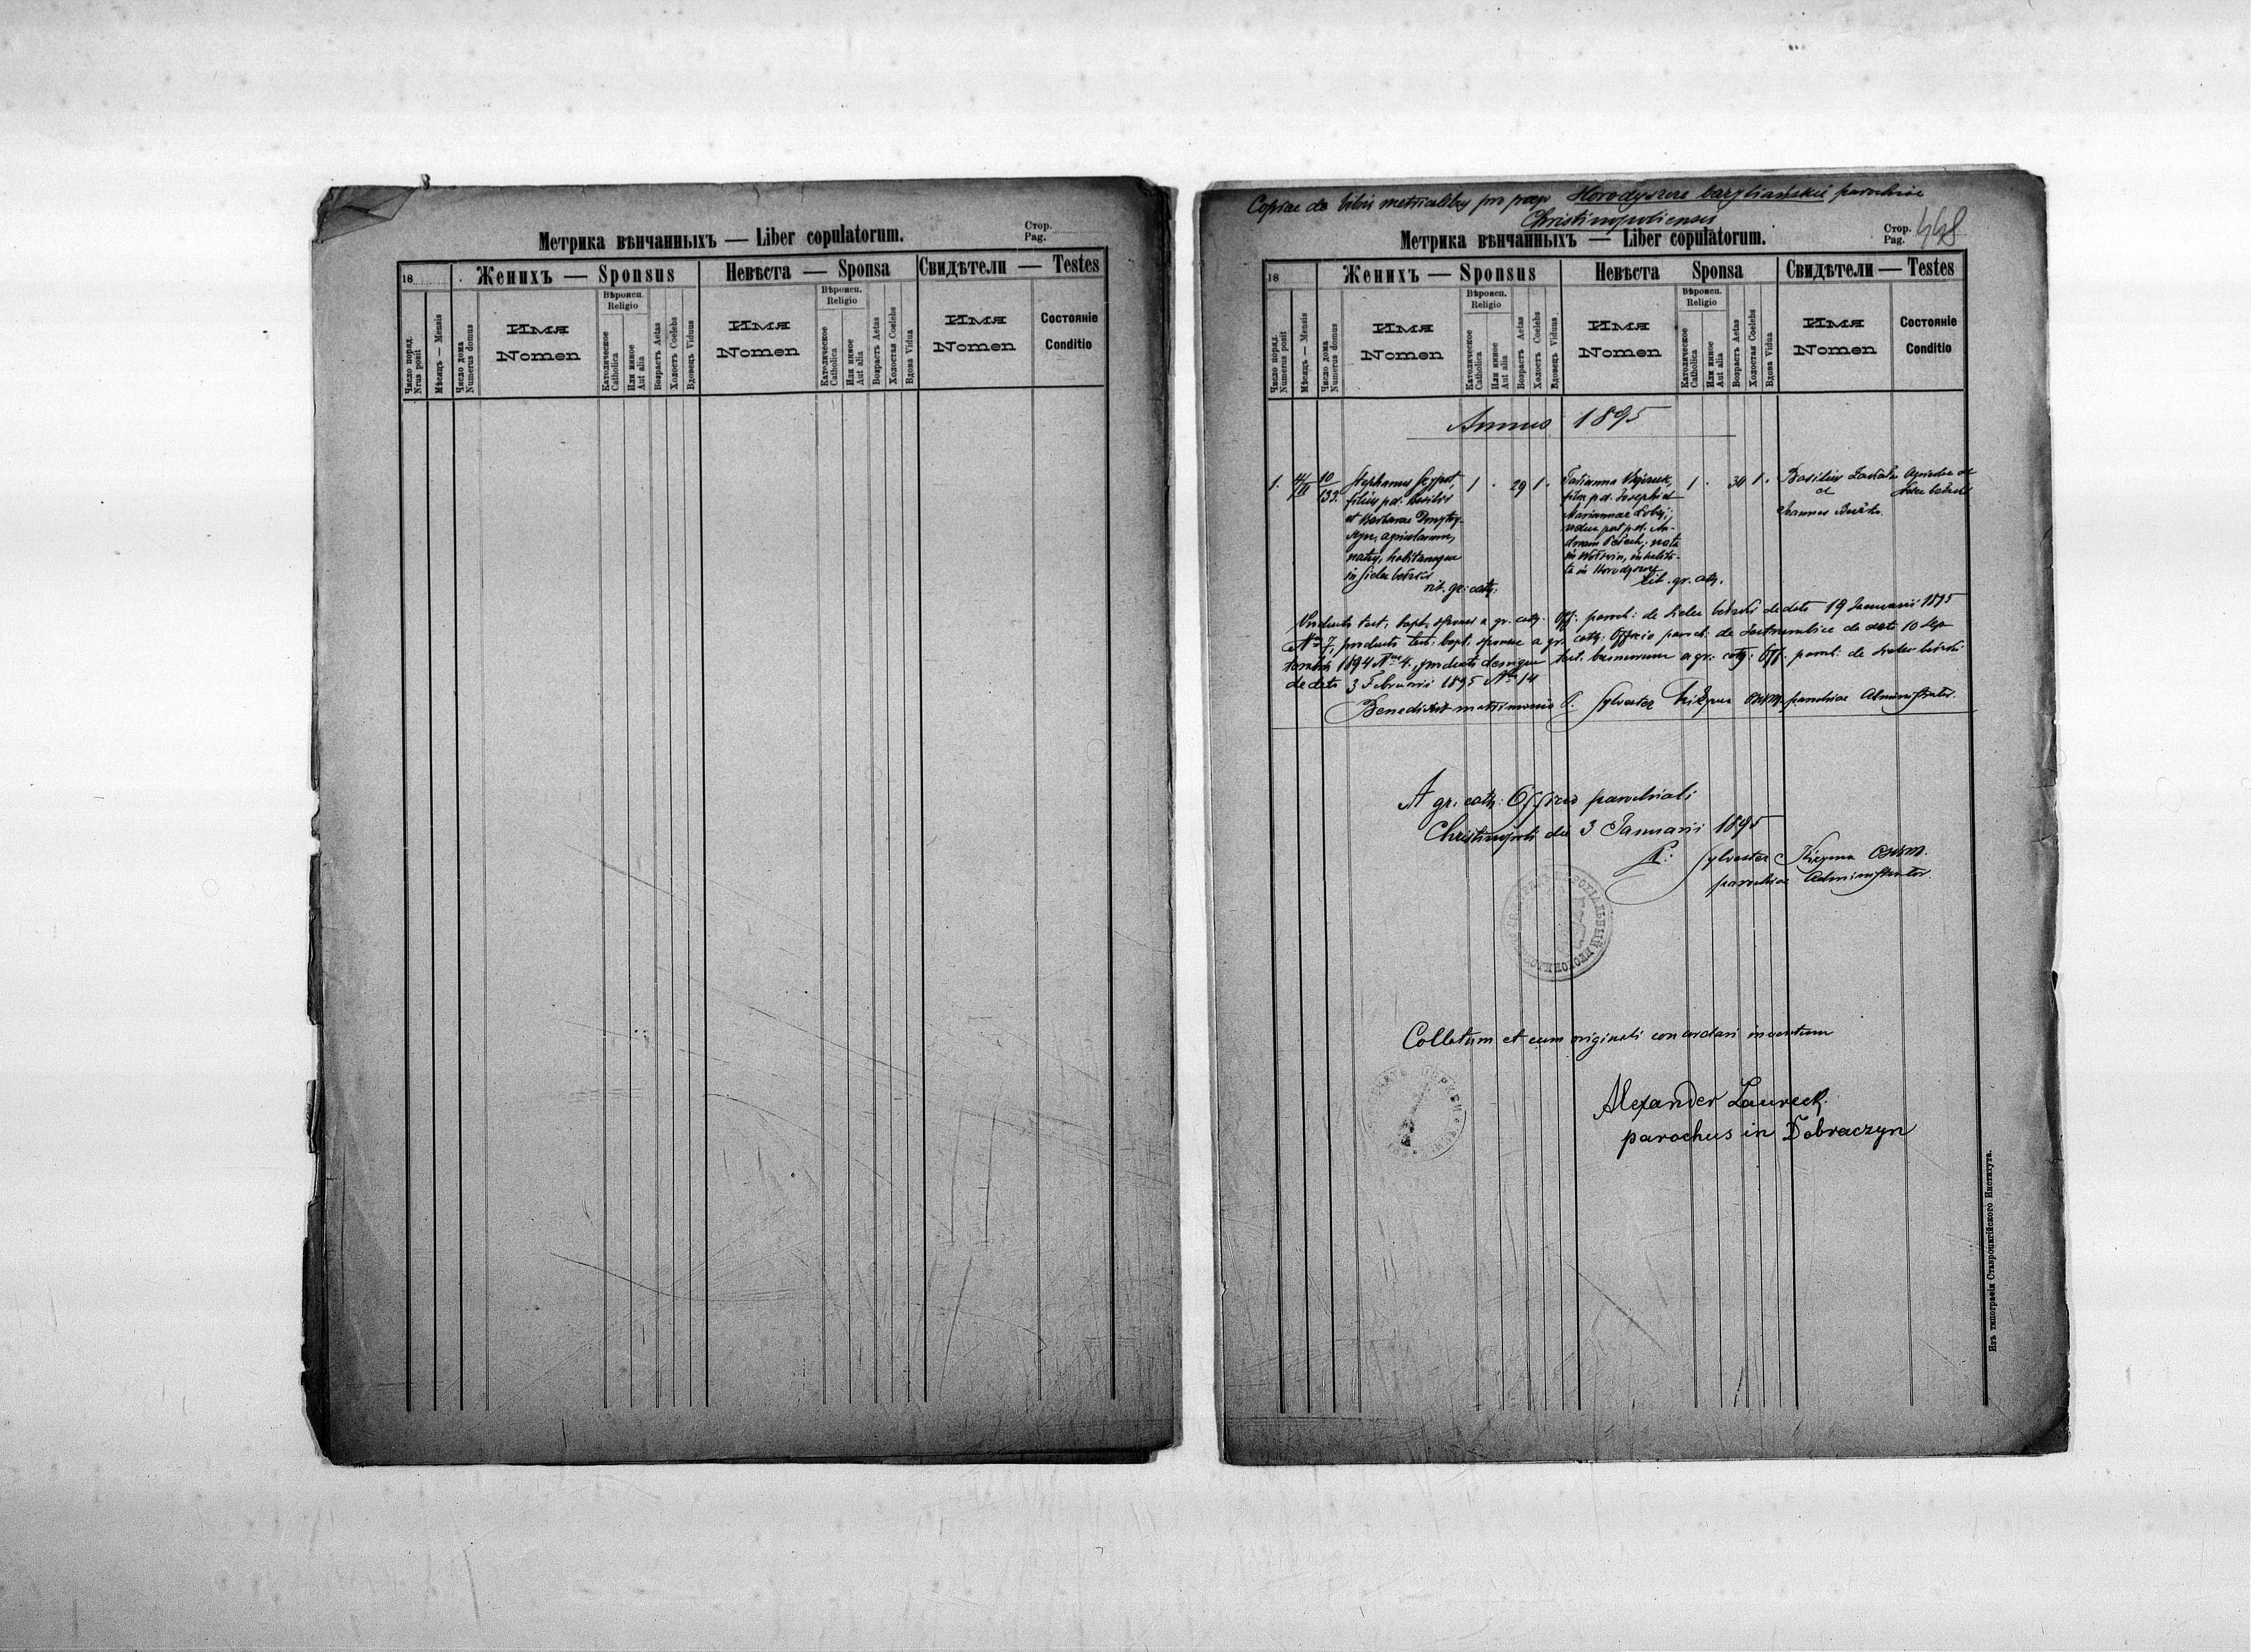 Метрика вѣнчанныхъ — Liber copulatorum.
Стор.
Pag.
18
Женихъ — Sponsus
Невѣста — Sponsa
Свидѣтели — Testes
Число поряд.
Nrus posit
Мѣсяцъ — Mensis
Число дома
Numerus domus
Имя
Nomen
Вѣроисп.
Religio
Католическое
Catholica
Или инное
Aut alia
Возрастъ Aetas
Холостъ Coelebs
Вдовецъ Viduus
Имя
Nomen
Вѣроисп.
Religio
Католическое
Catholica
Или инное
Aut alia
Возрастъ Aetas
Холостая Coelebs
Вдова Vidua
Имя
Nomen
Состояніе
Conditio
Copiae de libris metricalibus pro Horodyszcze parochiae
Christinopoliensis
Метрика вѣнчанныхъ — Liber copulatorum.
Стор.
Pag. 448
18
Женихъ — Sponsus
Невѣста Sponsa
Свидѣтели — Testes
Число поряд.
Numerus posit
Мѣсяцъ — Mensis
Число дома
Numerus domus
Имя
Nomen
Вѣроисп.
Religio
Католическое
Catholica
Или инное
Aut alia
Возрастъ Aetas
Холостъ Coelebs
Вдовецъ Viduus
Имя
Nomen
Вѣроисп.
Religio
Католическое
Catholica
Или инное
Aut alia
Возрастъ Aetas
Холостая Coelebs
Вдова Vidua
Имя
Nomen
Состояніе
Conditio
Annus 1895
1.
10
133.
Stephanus
filius p.d. Basilii
et Barbarae
agricolarum,
natus, habitansque
in Sielec
rit. gr: cath:
1 29 1
Tatianna
filia p.d. Josephi et
Mariannae
nata
in
ta in
rit. gr. cath.
1 34 1
Basilius
et
Joannes
Agricolae de
Sielec
test: bapt: sponsi a gr. cath: Off: paroch: de Sielec de dato 19 Januarii 1895
No 7, producta test: bapt: sponsae a gr. cath: Officio paroch: de de dato 10 Sep
tembris 1894 No 4., producta denique test. bannorum a gr: cath: Off: paroch: de Sielec
de dato 3 Februarii 1895 No 14
Benedixit matrimonio P. Sylvester OSBM. parochiae Administrator.
A gr. cath: Officio parochiali
Christinopoli die 3 Januarii 1895
P: Sylvester OSBM.
parochiae Administrator.
Collatum et cum originali concordari inventum
Alexander Laureck.
parochus in Dobraczyn
Изъ типографіи Ставропигійского Института.